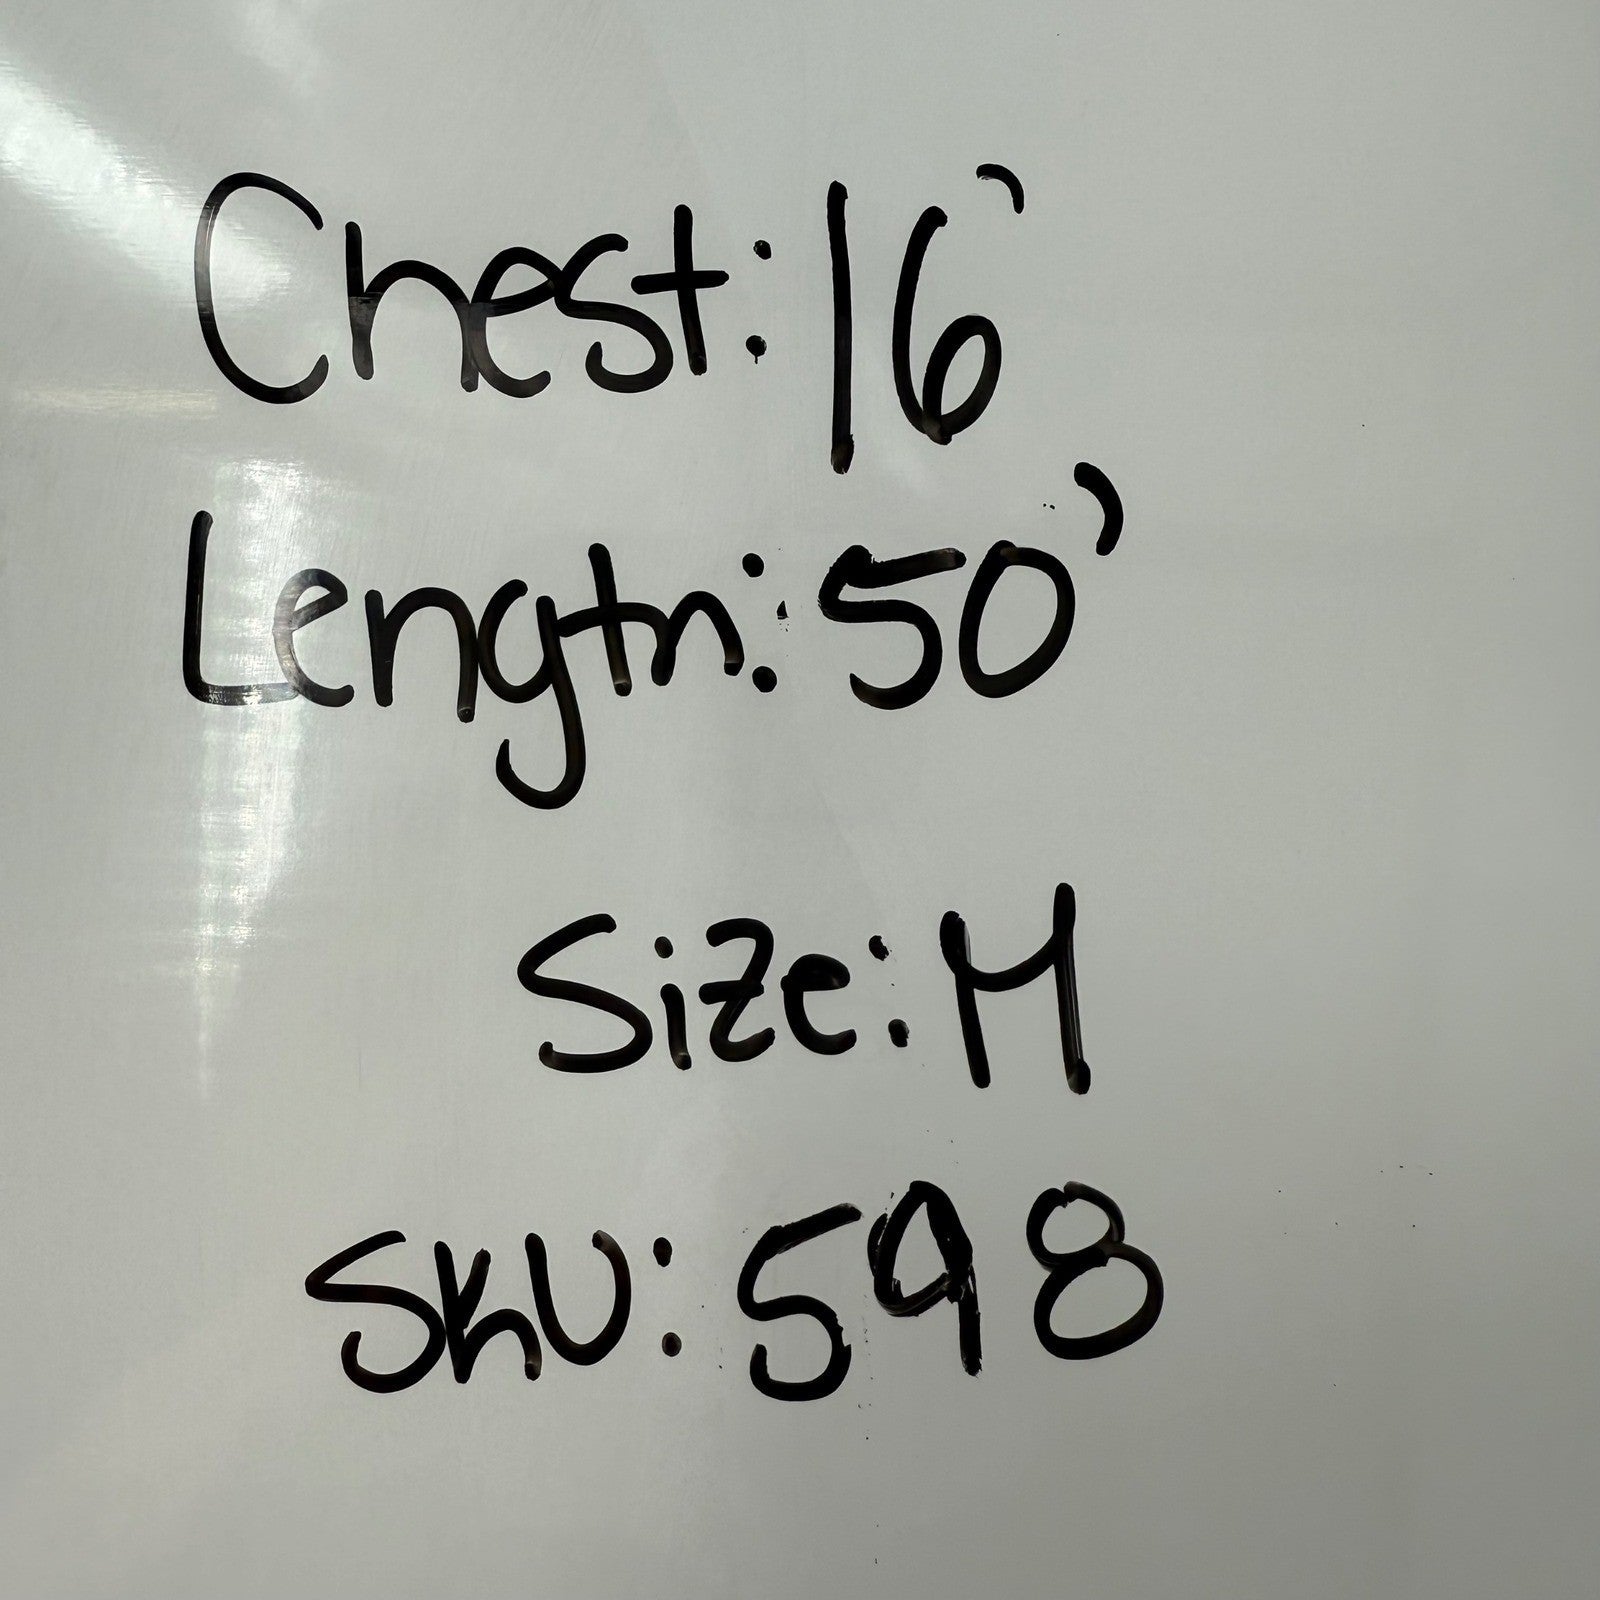 Chest: 16'
Length: 50'
Size: M
SKU: 598